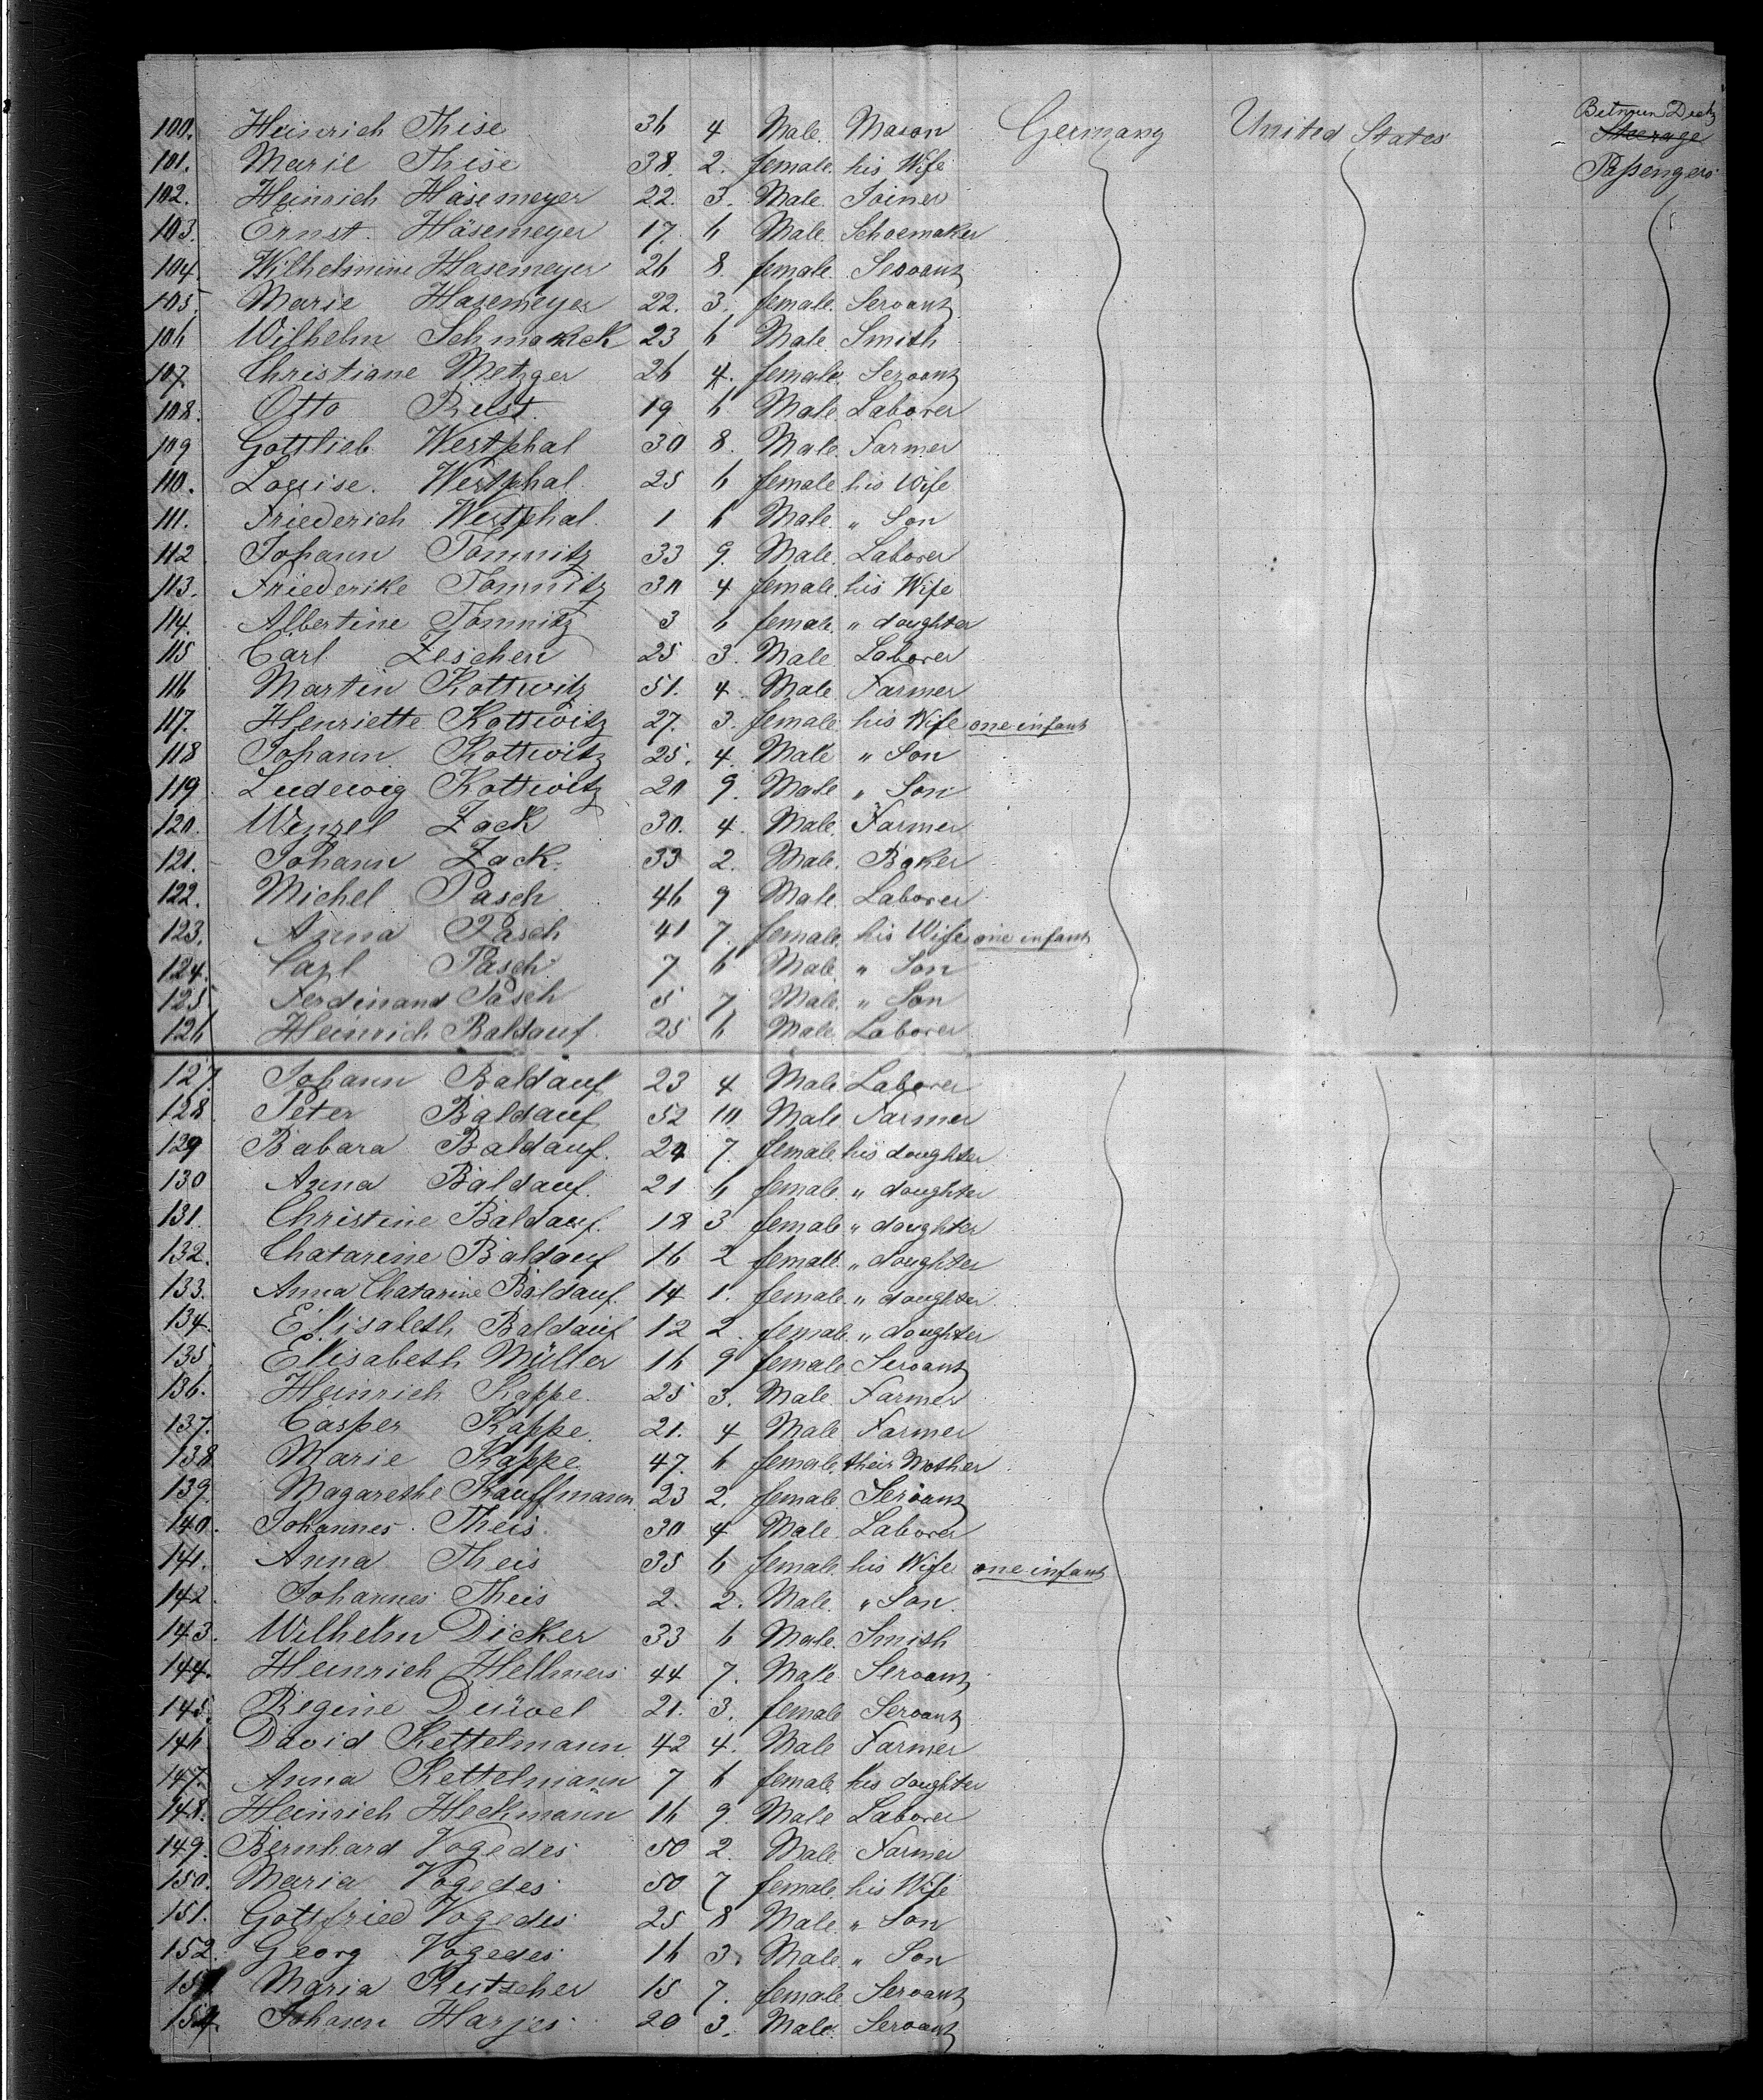 100. Heinrich Thise 36 4 Male. Mason Germany United States Between Decks ~~Steerage~~
101. Marie Thise 38. 2. female. his Wife Passengers
102. Heinrich Häsemeyer 22. 3. Male. Joiner
103. Ernst Häsemeyer 17. 6 Male. Schoemaker
104. Wilhelmine Hasemeyer 26 8 female. Servant
105. Marie Hasemeyer 22. 3. female. Servant
106 Wilhelm Schmokeck 23 6 Male. Smith
107. Christiane Metzger 26 4. female. Servant
108. Otto Rust 19 6 Male. Laborer
109 Gottlieb Westphal 30 8. Male. Farmer
110. Louise. Westphal 25 6 female his Wife
111. Friederich Westphal. 1 6 Male. " Son
112 Johann Tomnitz 33 9. Male. Laborer
113. Friederike Tomnitz 30 4 female. his Wife
114. Albertine Tomnitz 3 6 female. " doughter
115 Carl Zeschen 25 3. Male. Laborer
116 Martin Kottwitz 51. 4. Male Farmer
117. Henriette Kottwitz 27. 3. female his Wife one infant
118 Johann Kottwitz 25. 4. Male " Son
119 Ludewig Kottwitz 20 9. Male " Son
120. Wenzel Zack 30. 4. Male. Farmer
121. Johann Zack. 33 2. Male. Baker
122. Michel Pasch 46 9 Male. Laborer
123. Anna Pasch 41 7. female. his Wife one infant
124. Carl Pasch 7 6 Male " Son
125 Ferdinand Pasch 5 7 Male. " Son
126 Heinrich Baldauf 25 6 Male. Laborer
127. Johann Baldauf 23 4 Male Laborer
128. Peter Baldauf 52 10 Male. Farmer
129 Babara Baldauf. 24 7. female. his doughter
130 Anna Baldauf. 21 6 female. " doughter
131. Christine Baldauf. 18 3 female " doughter
132. Chatarine Baldauf 16 2 female. " doughter
133. Anna Chatarine Baldauf. 14 1. female. " doughter
134. Elisabeth Baldauf 12 2. female. " doughter
135 Elisabeth Müller 16 9 female Servant
136. Heinrich Kappe. 25 3. Male. Farmer
137. Casper Kappe. 21. 4 Male. Farmer
138 Marie Kappe. 47. 6 female. their Mother
139. Magarethe Kauffmann 23 2. female. Servant
140. Johannes. Theis. 30 4 Male. Laborer
141. Anna Theis 35 6 female. his Wife one infant
142. Johannes Theis 2. 2. Male. " Son.
143. Wilhelm Dicker 33 6 Male. Smith
144. Heinrich Hellmers 44 7. Male. Servant
145. Regine Düvel 21. 3. female Servant
146 David Kettelmann 42 4. Male Farmer
147. Anna Kettelmann 7 6 female his doughter
148. Heinrich Heckmann 16 9. Male Laborer
149. Bernhard Vogedes 50 2. Male. Farmer
150. Maria Vogedes 50 7 female. his Wife
151. Gottfried Vogedes 25 8 Male. " Son
152. Georg Vogedes 16 3. Male. " Son
153 Maria Kutscher 15 7. female Servant
154. Johann Harjes 20 3. Male. Servant